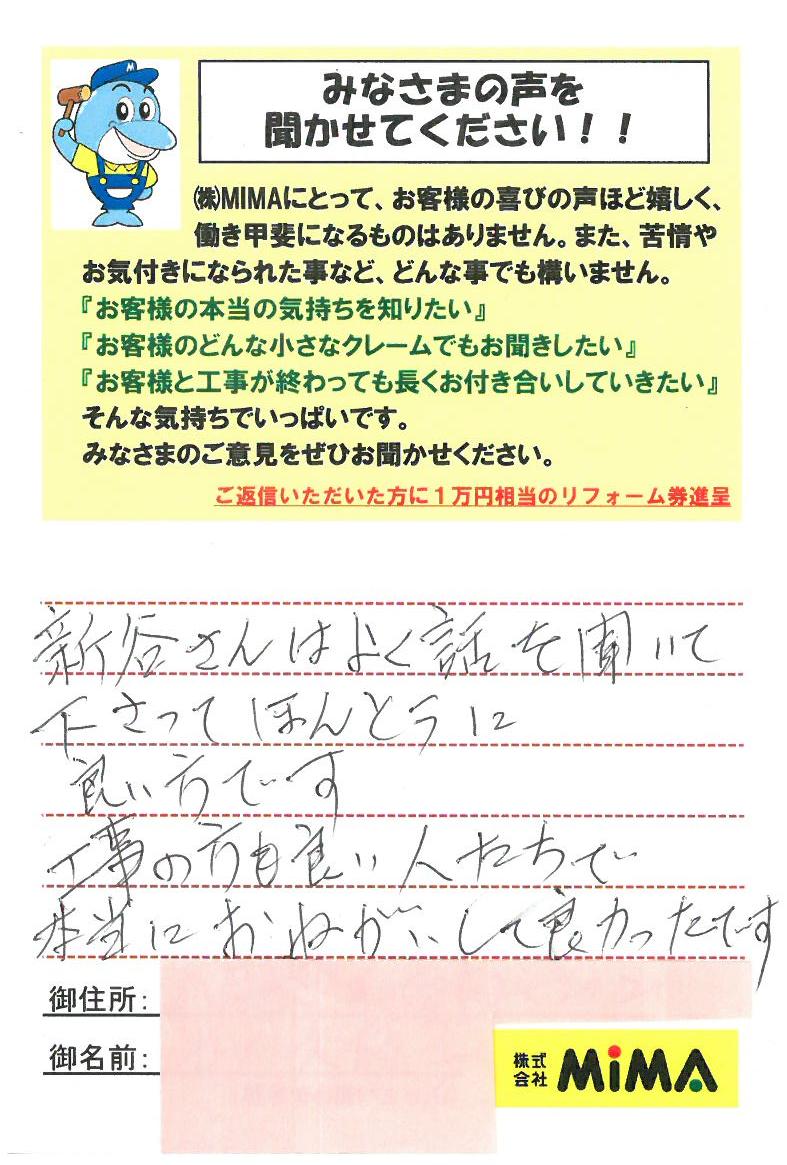 M
みなさまの声を
聞かせてください！！
㈱MIMAにとって、お客様の喜びの声ほど嬉しく、
働き甲斐になるものはありません。また、苦情や
お気付きになられた事など、どんな事でも構いません。
『お客様の本当の気持ちを知りたい』
『お客様のどんな小さなクレームでもお聞きしたい』
『お客様と工事が終わっても長くお付き合いしていきたい』
そんな気持ちでいっぱいです。
みなさまのご意見をぜひお聞かせください。
ご返信いただいた方に１万円相当のリフォーム券進呈
新谷さんはよく話を聞いて
下さってほんとうに
良い方です
工事の方も良い人たちで
本当におねがいして良かったです
御住所：
御名前：
株式会社 MiMA